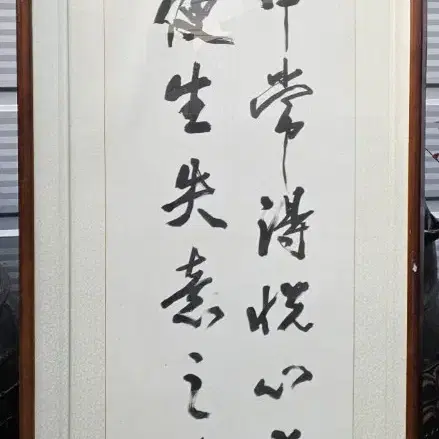 常得悦心
便生失意之